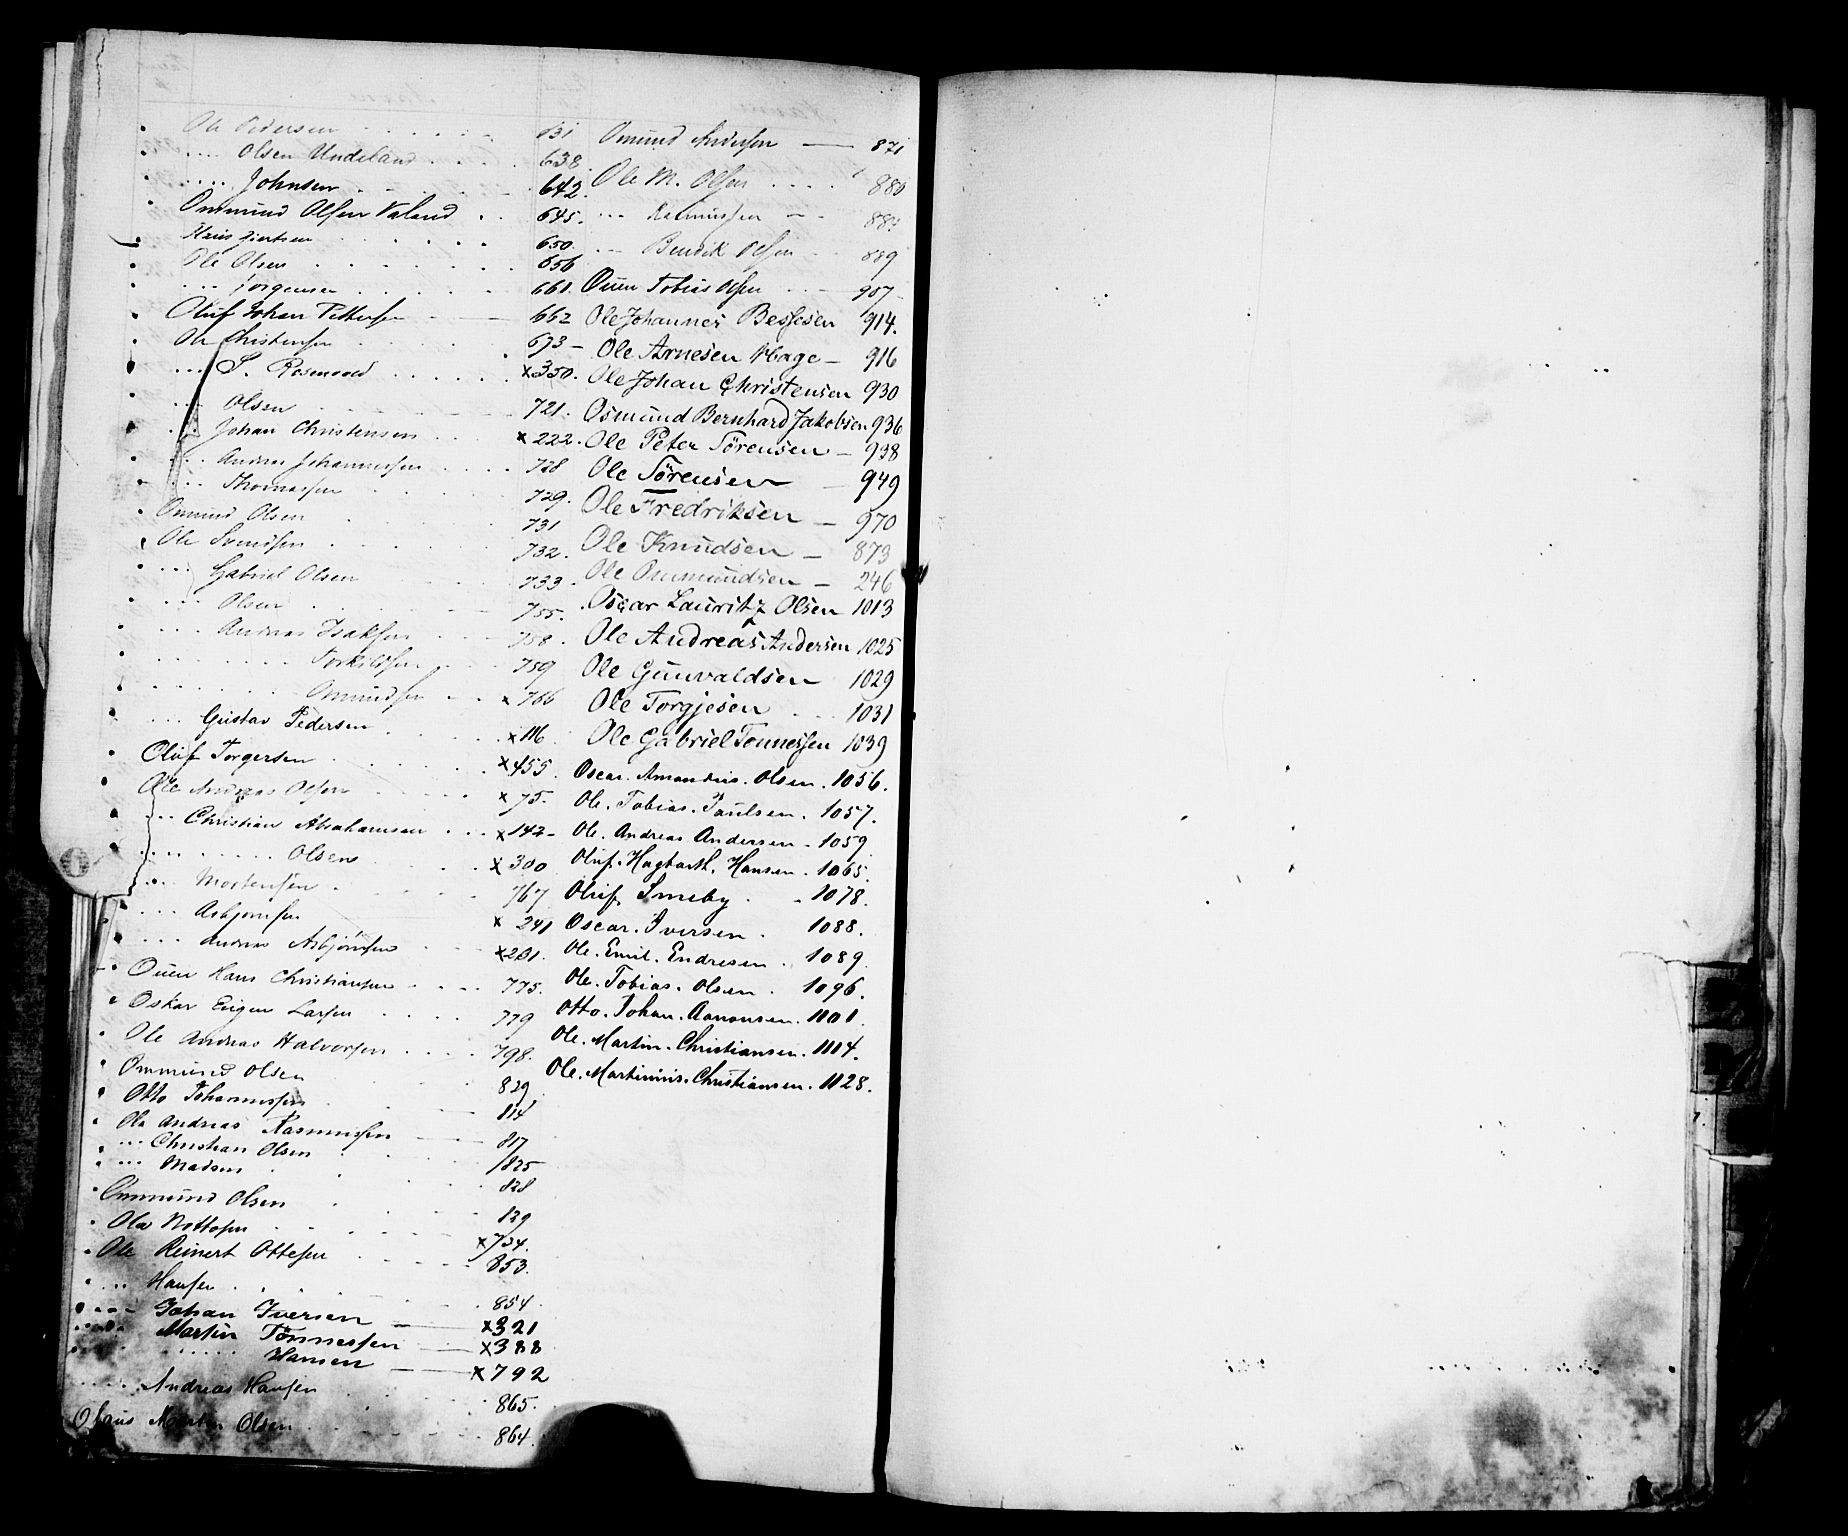 Ole Pedersen 631
Olsen Undeland 638
Johnsen 642.
Ommund Olsen Valand 645.
Hans Gjertsen 650
Ole Olsen 656
Jörgensen 661.
Oluf Johan Pettersen 662
Ole Christensen 673
S. Rosenvold x350.
Olsen 721.
Johan Christensen x222.
Andreas Johannessen 728
Thomassen 729.
Ommund Olsen 731
Ole Svendsen 732.
Gabriel Olsen 733
Olsen 755.
Andreas Isaksen 758
Torkildsen 759
Omundsen x766
Gustav Pedersen x116
Oluf Torgersen x455
Ole Andreas Olsen x75.
Christian Abrahamsen x142
Olsen x300
Mortensen 767
Asbjornsen x241
Andreas Asbjörnsen x201.
Ouen Hans Christiansen 775.
Oskar Eugen Larsen 779
Ole Andreas Halvorsen 798.
Ommund Olsen 829
Otto Johannessen 814
Ole Andreas Rasmussen 817
Christian Olsen 825
Madsen 828
Ommund Olsen 829
Ole Nottosen x734.
Ole Reinert Ottesen 853.
Hansen 854
Johan Iversen x321
Martin Tönnessen x388
Hansen x792
Andreas Hansen 865.
Martin Olsen 864.
Omund Andersen 871
Ole M. Olsen 880
Rasmussen
Bendik Olsen 889
Ouen Tobias Olsen 907
Ole Johannes Bessesen 914.
Ole Arnesen Hage 916
Ole Johan Christensen 930
Osmund Bernhard Jakobsen 936
Ole Peter Törensen 938
Ole Törensen 949
Ole Fredriksen 970
Ole Knudsen 873
Ole Ommundsen 246
Oscar Lauritz Olsen 1013
Ole Andreas Andersen 1025
Ole Gunvaldsen 1029
Ole Torgjesen 1031
Ole Gabriel Tonnessen 1039
Oscar. Amandus. Olsen. 1056.
Ole. Tobias. Paulsen. 1057.
Ole. Andreas Andersen. 1059.
Oluf. Hagbarth. Hansen. 1065.
Oluf Smeby 1078.
Oscar. Iversen. 1088.
Ole. Emil. Endresen. 1089.
Ole. Tobias. Olsen. 1096.
Otto. Johan. Aanonsen. 1101.
Ole. Martin. Christiansen. 1114.
Ole. Martinius. Christiansen. 1128.